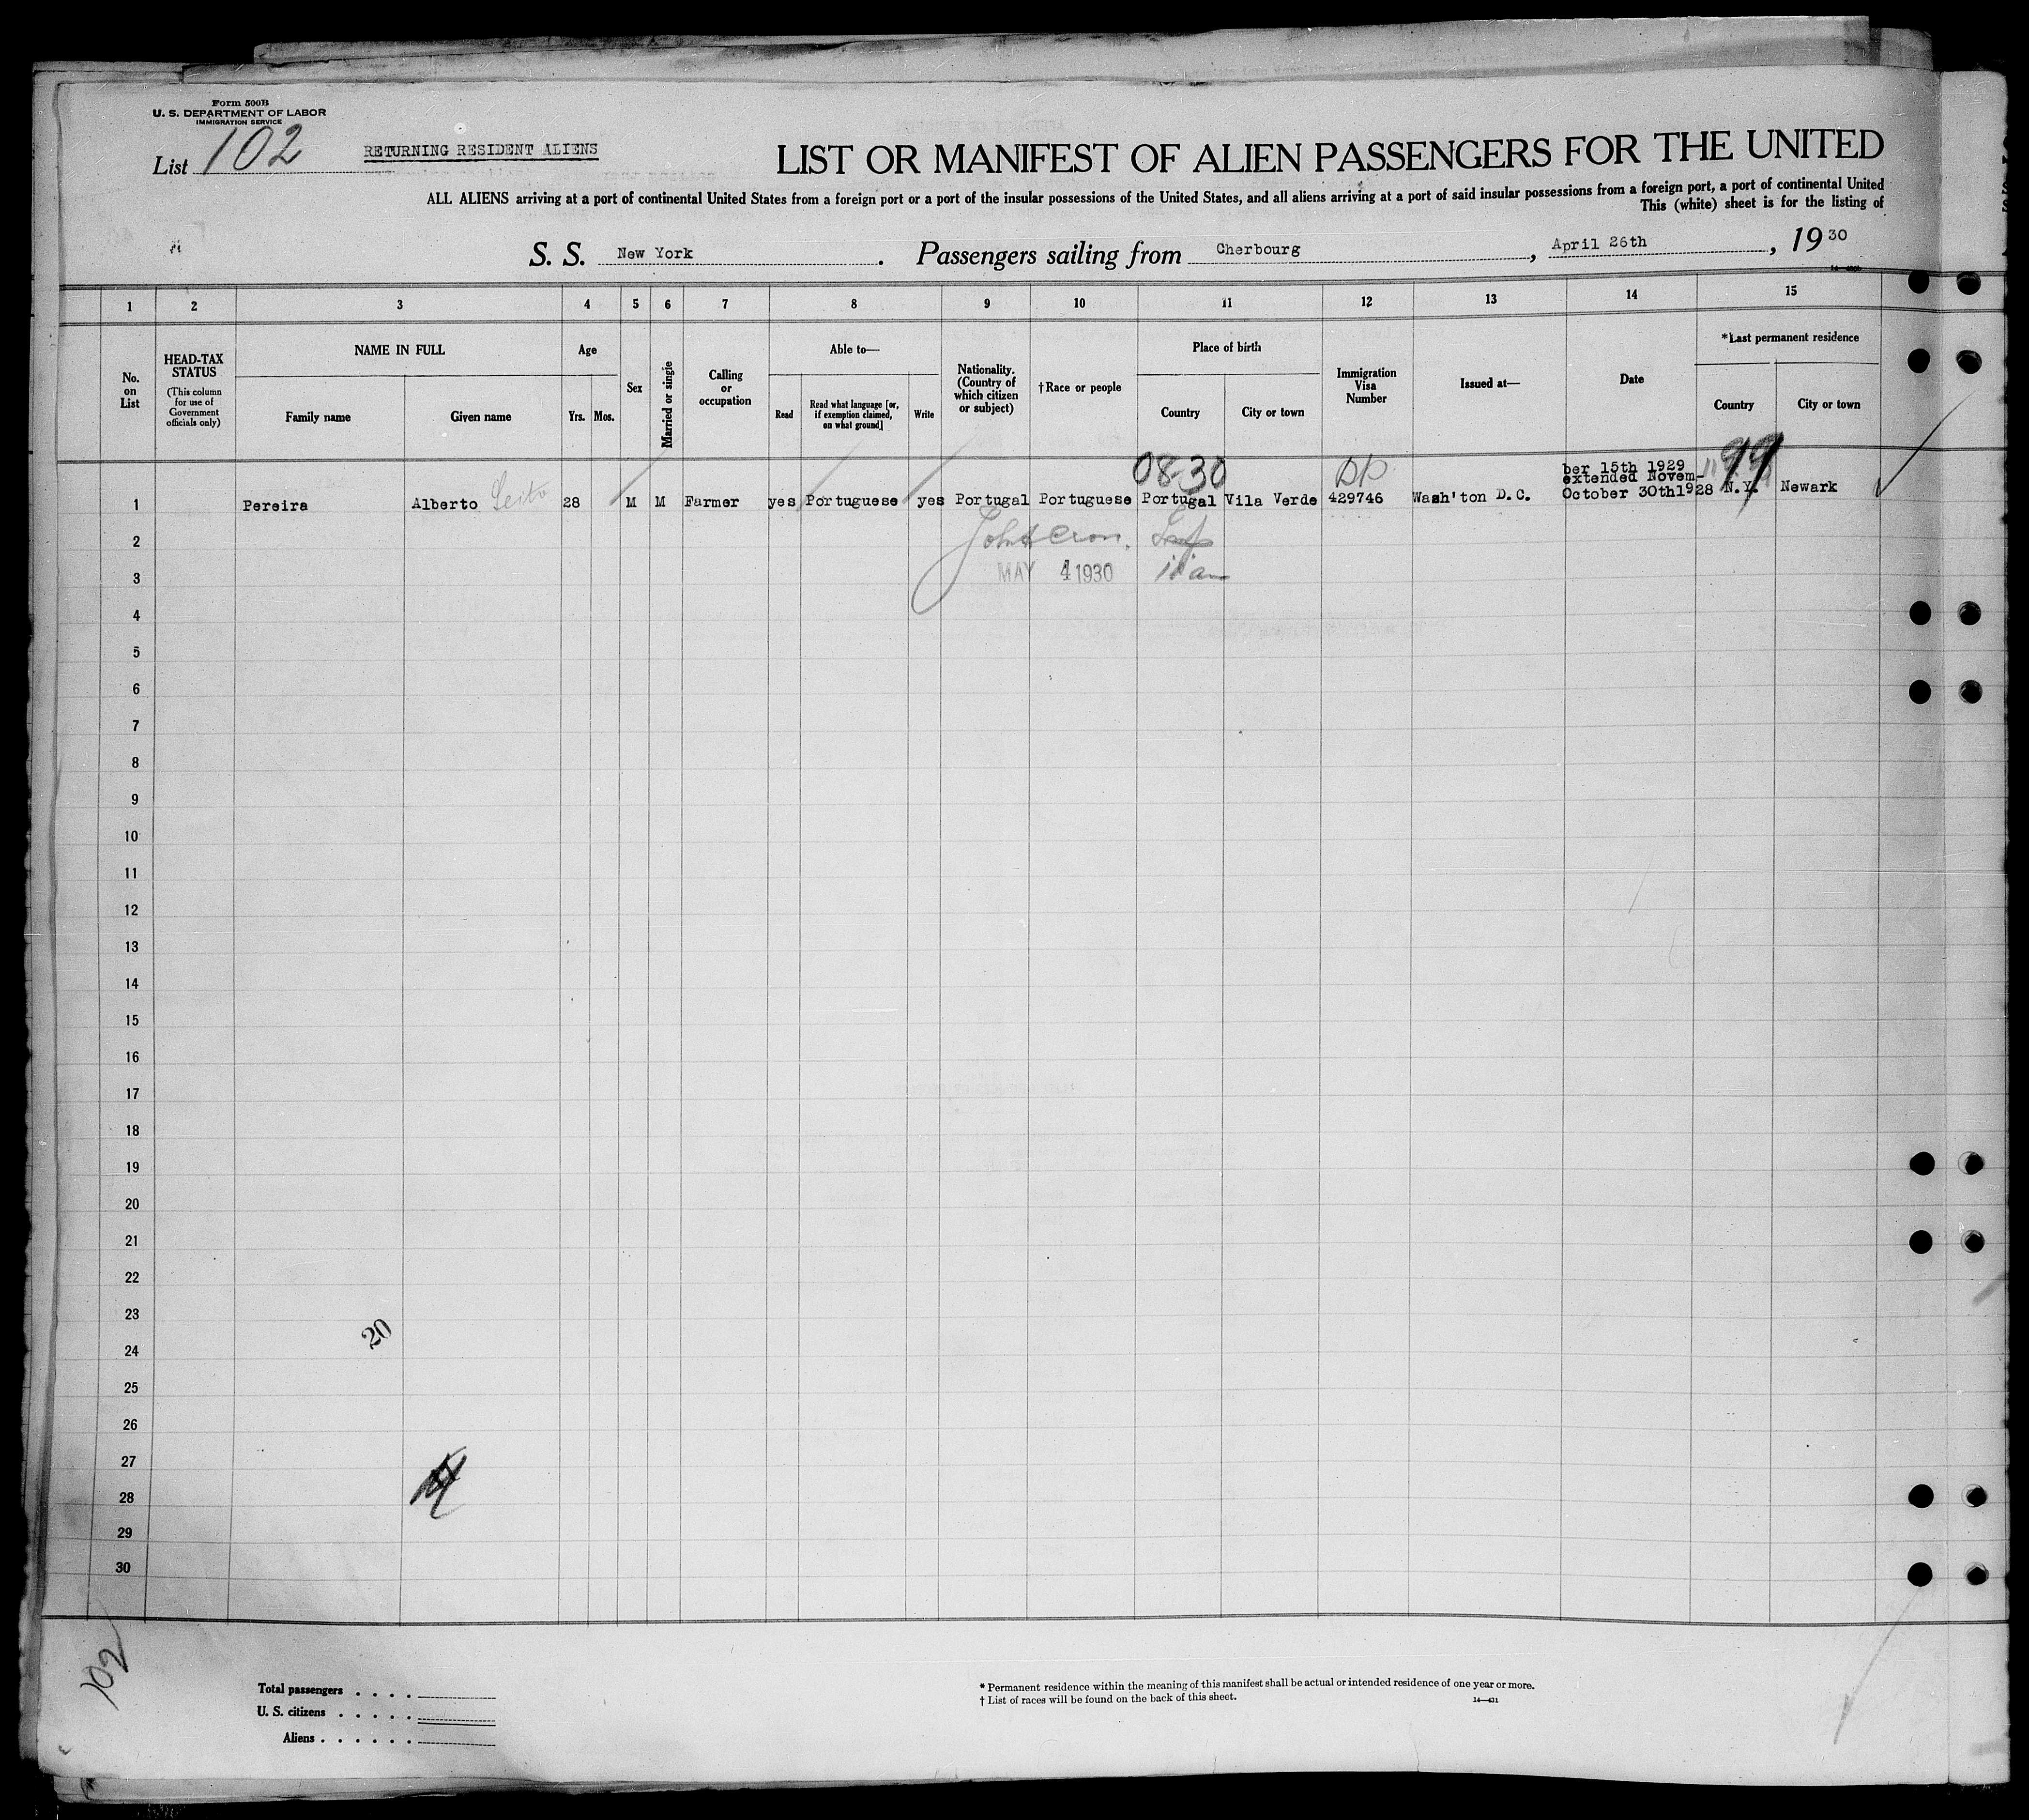 Form 500B
U. S. DEPARTMENT OF LABOR
IMMIGRATION SERVICE
List 102
RETURNING RESIDENT ALIENS
LIST OR MANIFEST OF ALIEN PASSENGERS FOR THE UNITED
ALL ALIENS arriving at a port of continental United States from a foreign port or a port of the insular possessions of the United States, and all aliens arriving at a port of said insular possessions from a foreign port, a port of continental United
This (white) sheet is for the listing of
S. S. New York. Passengers sailing from Cherbourg, April 26th, 1930
1 2 3 4 5 6 7 8 9 10 11 12 13 14 15
No. on List
HEAD-TAX STATUS
(This column for use of Government officials only)
NAME IN FULL
Family name
Given name
Age
Yrs.
Mos.
Sex
Married or single
Calling or occupation
Able to—
Read
Read what language [or, if exemption claimed, on what ground]
Write
Nationality. (Country of which citizen or subject)
†Race or people
Place of birth
Country
City or town
Immigration Visa Number
Issued at—
Date
*Last permanent residence
Country
City or town
08-30
99
ber 15th 1929
extended Novem-
October 30th1928
1 Pereira Alberto 28 M M Farmer yes Portuguese yes Portugal Portuguese Portugal Vila Verde 429746 Wash'ton D.C. N.Y. Newark
2
3 MAY 4 1930
4
5
6
7
8
9
10
11
12
13
14
15
16
17
18
19
20
21
22
23
20
24
25
26
27
28
29
30
102
Total passengers . . . .
U. S. citizens . . . . .
Aliens . . . . . .
* Permanent residence within the meaning of this manifest shall be actual or intended residence of one year or more.
† List of races will be found on the back of this sheet.
14—431